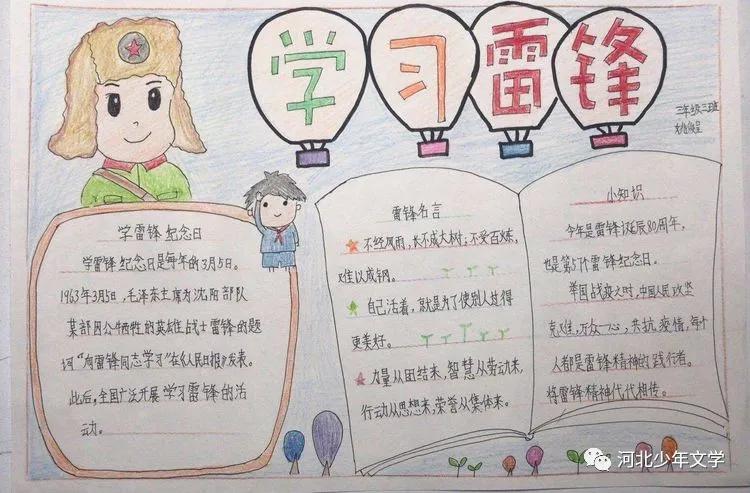 学习雷锋
三年级三班
学雷锋纪念日
学雷锋纪念日是每年的3月5日。
1963年3月5日,毛泽东主席为沈阳部队
某部因公牺牲的英雄战士雷锋的题
词“向雷锋同志学习”在《人民日报》发表。
此后,全国广泛开展学习雷锋的活
动。
雷锋名言
不经风雨,长不成大树;不受百炼,
难以成钢。
自己活着,就是为了使别人过得
更美好。
力量从团结来,智慧从劳动来,
行动从思想来,荣誉从集体来。
小知识
今年是雷锋诞辰80周年,
也是第57个雷锋纪念日。
举国战疫之时,中国人民攻坚
克难,万众一心,共抗疫情,每个
人都是雷锋精神的践行者。
将雷锋精神代代相传。
河北少年文学